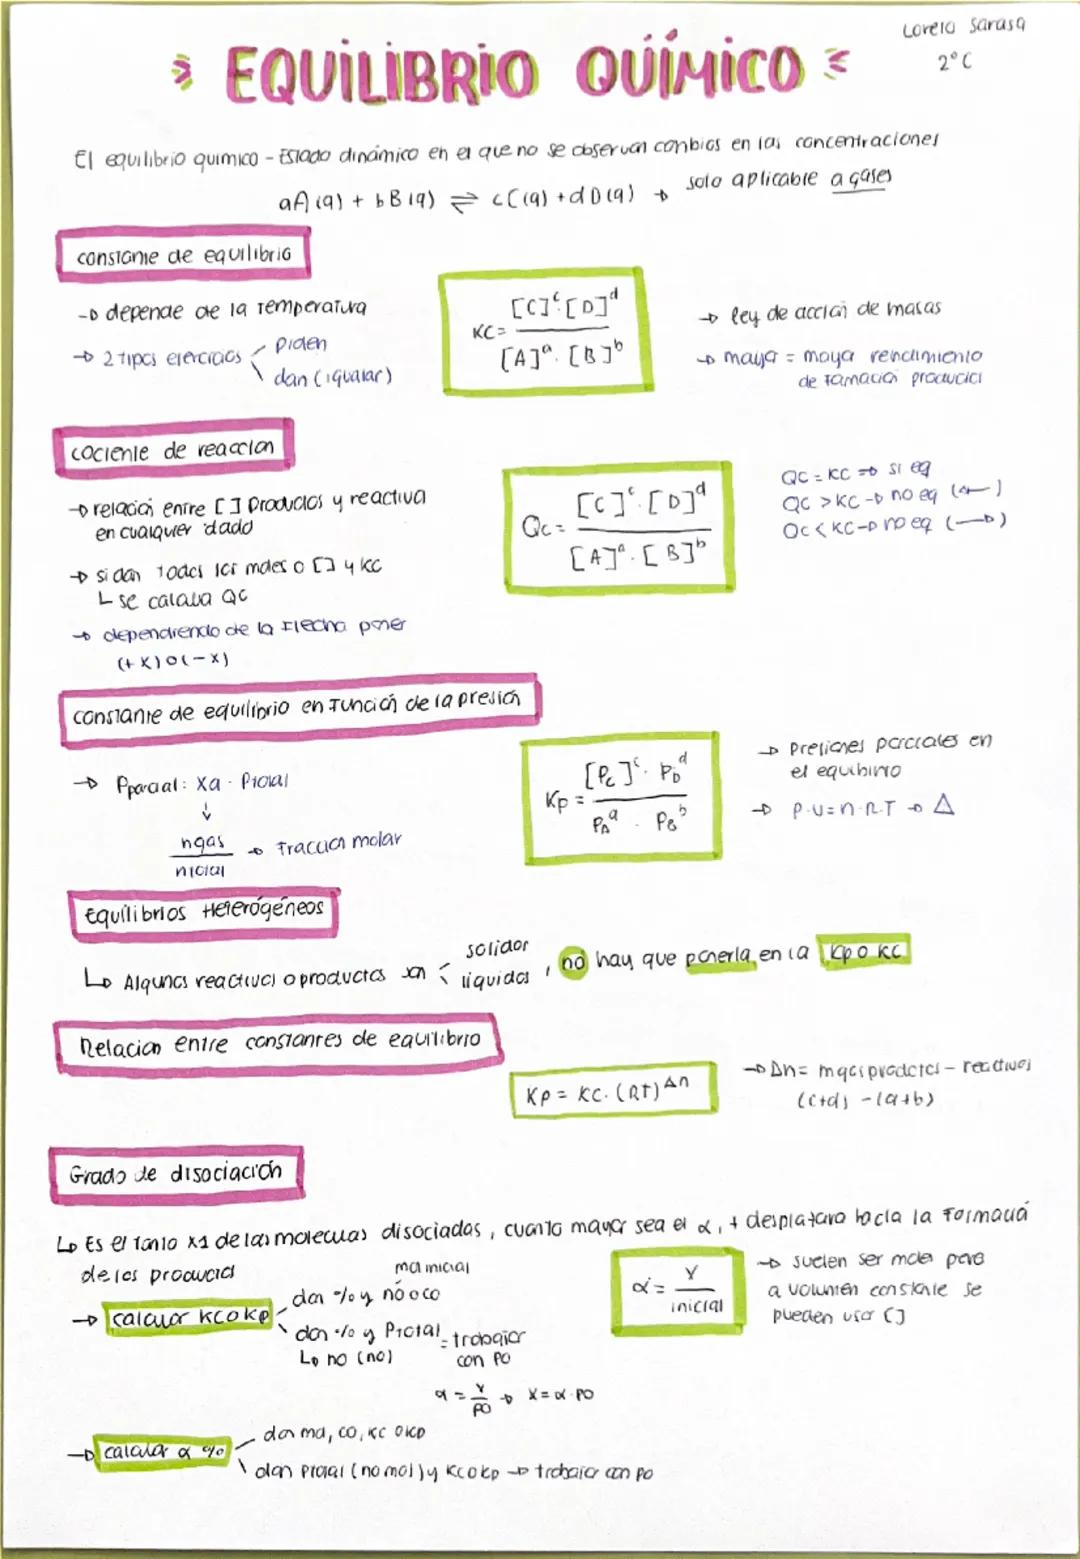 Lorela Sarasa
2ºC
EQUILIBRIO QUÍMICO
El equilibrio quimico - Estado dinámico en el que no se observan cambios en las concentraciones
aA (g) + bB (g) ⇌ cC (g) + dD (g) → solo aplicable a gases
constante de equilibrio
→ depende de la temperatura
→ 2 tipos ejercicios
piden
dan (igualar)
KC = [C]^c · [D]^d / [A]^a · [B]^b
→ ley de acción de masas
→ mayor = mayor rendimiento
de formación producto
cociente de reaccion
→ relación entre [ ] productos y reactivo
en cualquier dado
→ si dan todos los moles o [ ] y kc
se calcula Qc
→ dependiendo de la flecha poner
(+x) o (-x)
Qc = [C]^c · [D]^d / [A]^a · [B]^b
QC = KC → si eq
QC > KC → no eq (←)
QC < KC → no eq (→)
constante de equilibrio en función de la presión
→ Pparcial: Xa · Ptotal
↓
ngas / ntotal → Fracción molar
Kp = [Pc]^c · PD^d / PA^a · PB^b
→ Presiones parciales en
el equilibrio
→ P·V=n·R·T → Δ
Equilibrios Heterógéneos
Algunos reactivos o productos son
solidos
liquidos
, no hay que ponerla en la Kp o KC
Relacion entre constantes de equilibrio
Kp = KC · (RT)^Δn
→ Δn = productos - reactivos
(c+d) - (a+b)
Grado de disociación
Es el tanto x1 de las moleculas disociadas, cuanto mayor sea el α, + desplazara hacia la formació
de los productos
α = x / inicial
→ suelen ser moles pero
a volumen constante se
pueden usar [ ]
→ calcular KC o Kp
mol inicial
dan % y no o co
dan % y Ptotal = trabajar
no (no) con PO
α = x / PO → X = α · PO
→ calcular α %
dan mol, co, KC o KP
dan Ptotal (no mol) y KC o kp → trabajar con PO